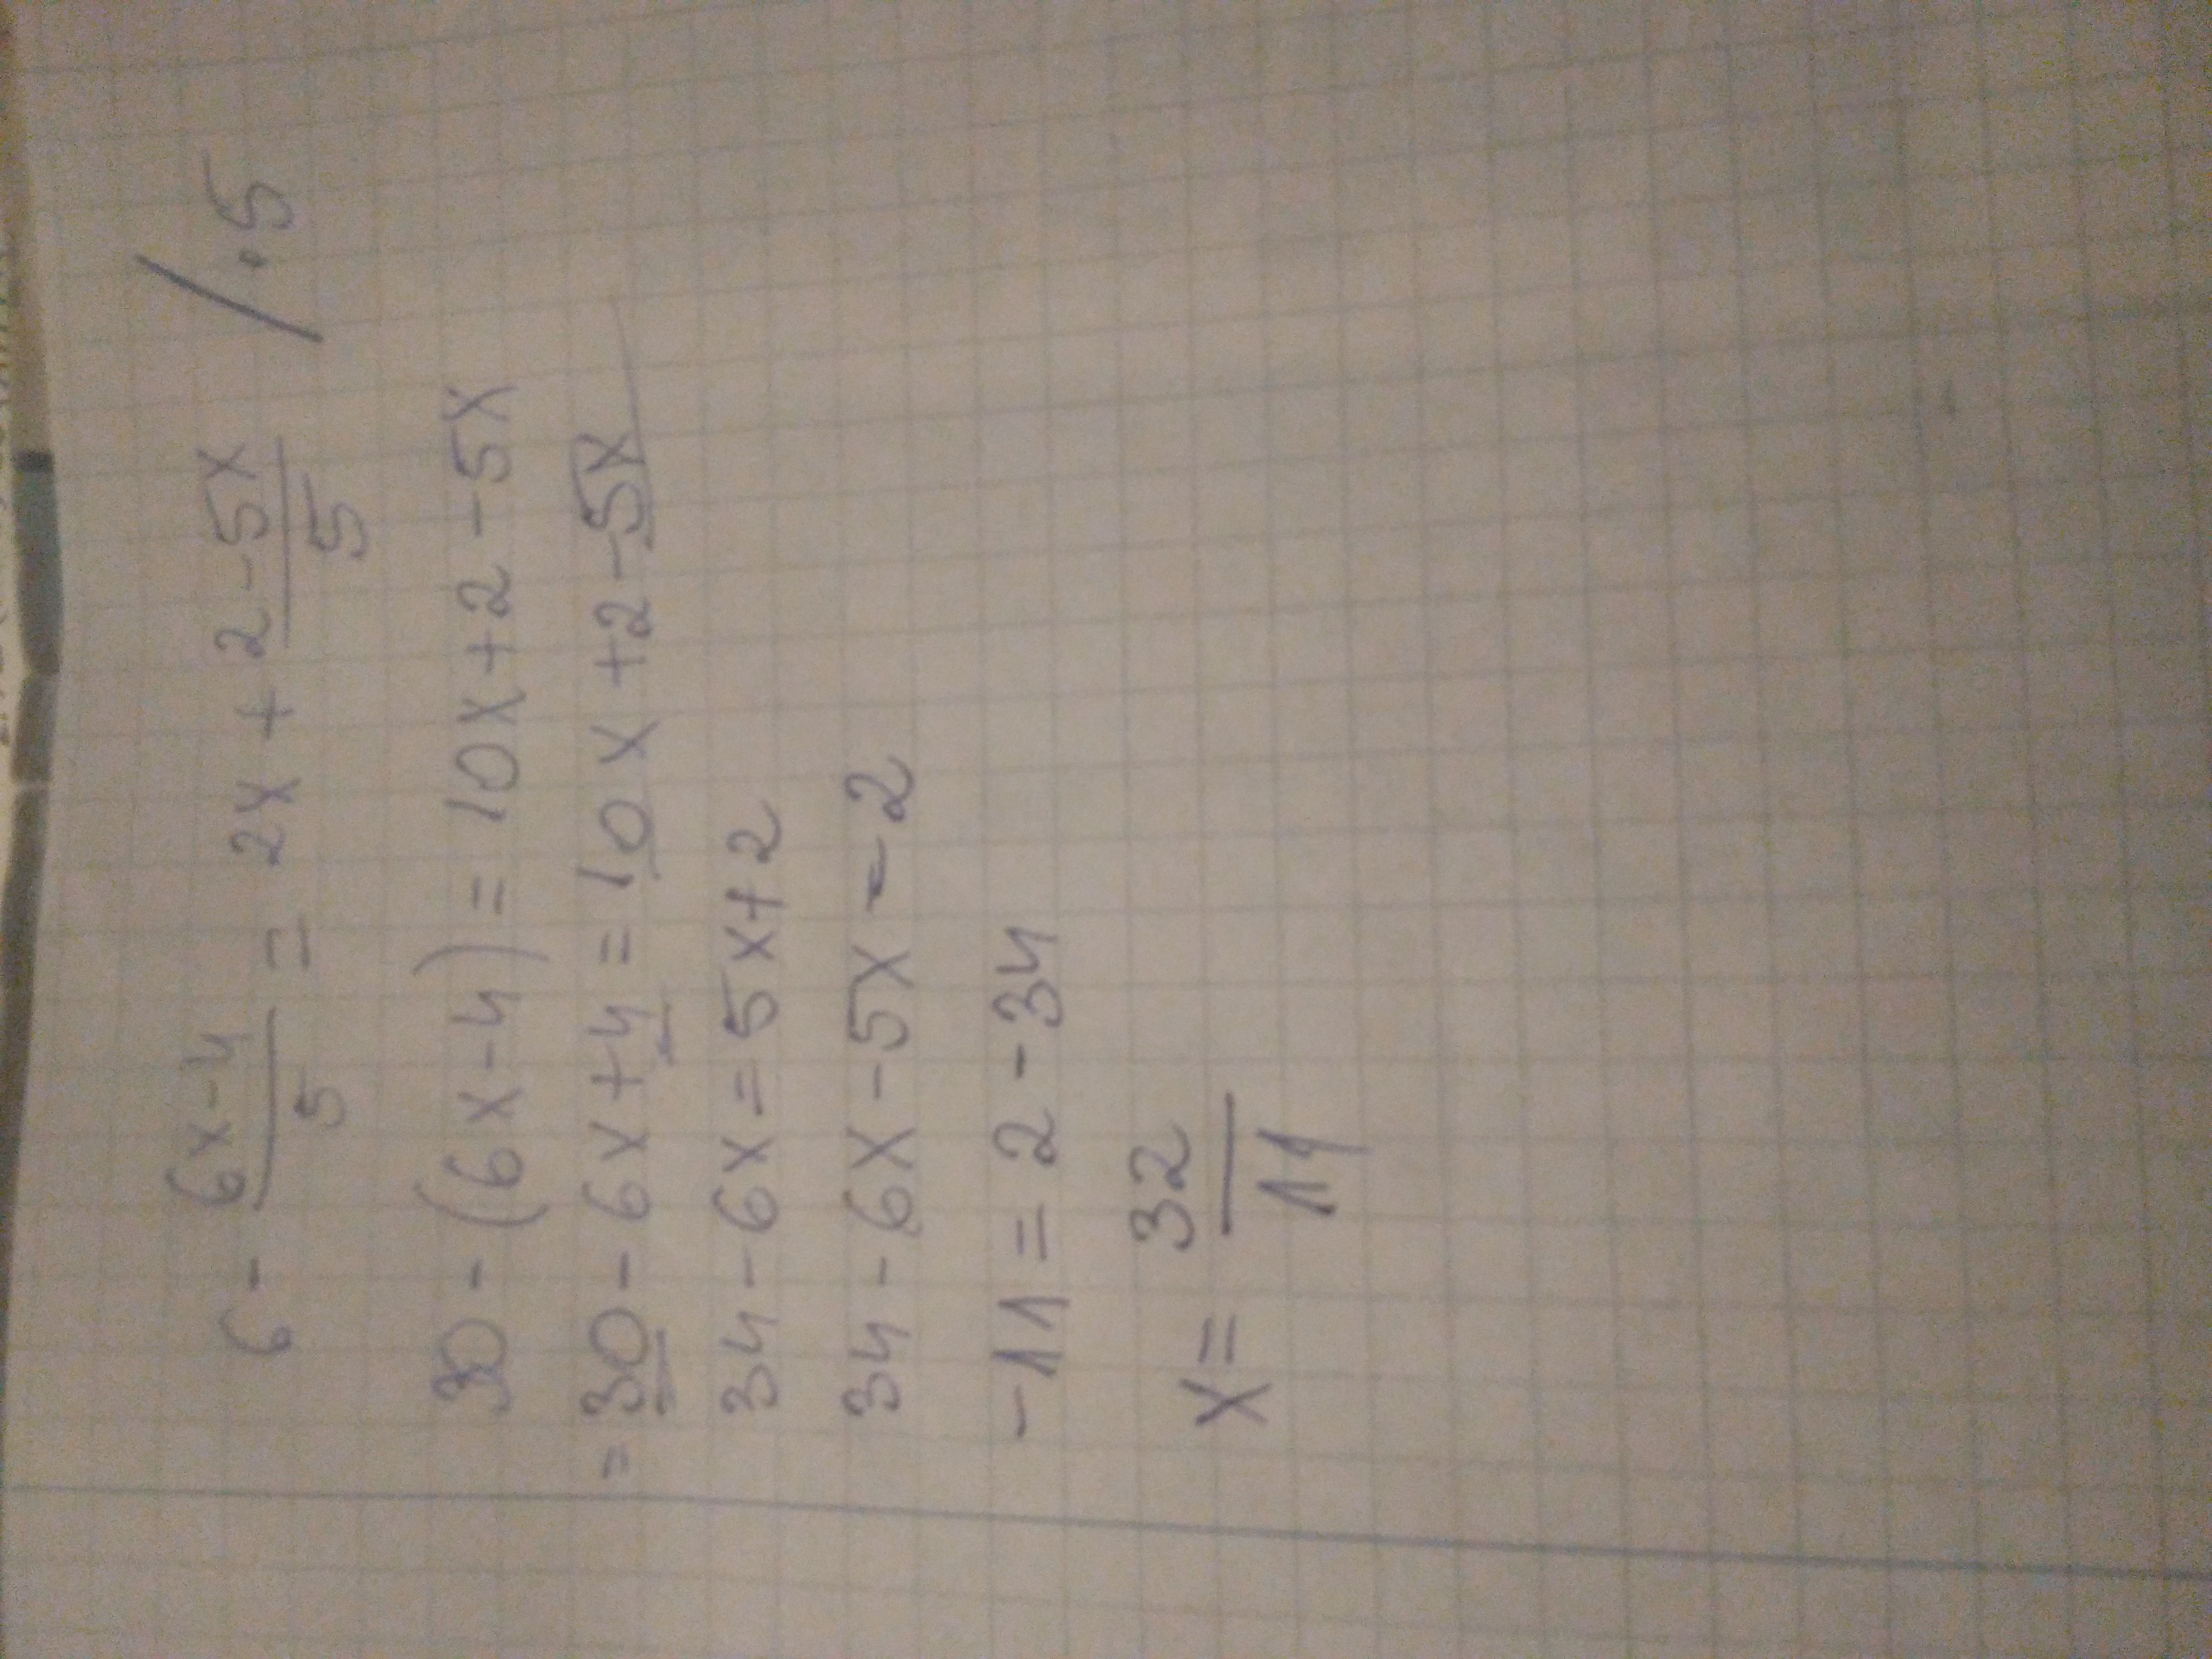 6 - \frac{6x-4}{5} = 2x + \frac{2-5x}{5} /·5
30 - (6x-4) = 10x + 2 - 5x
= 30 - 6x + 4 = 10x + 2 - 5x
34 - 6x = 5x + 2
34 - 6x - 5x - 2
-11 = 2 - 34
x = \frac{32}{11}